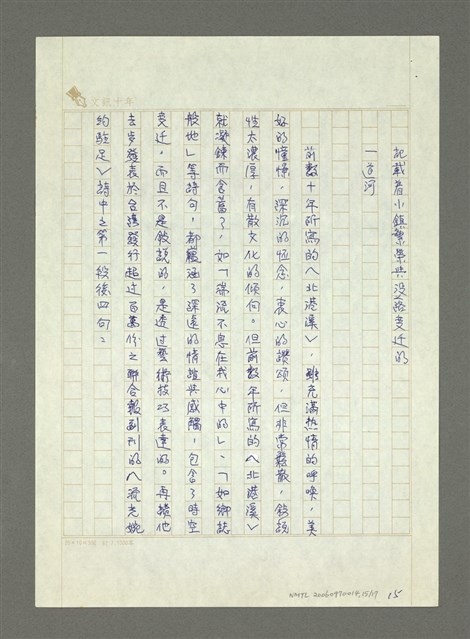 記載着小鎮繁榮與沒落变迁的
一道河
前數十年所寫的〈北港溪〉，雖充滿熱情的呼喚，美
好的憧憬，深沉的怀念，衷心的讚頌，但非常鬆散，敘說
性太濃厚，有散文化的傾向。但前數年所寫的〈北港溪〉
就凝鍊而含蓄了，如「湍流不息在我心中的」、「如鄉誌
般地」等詩句，都蘊涵了深遠的情誼與感觸，包含了時空
变迁，而且不是敘說的，是透过藝術技巧表達的。再讀他
去岁發表於台灣發行超过百萬份之聯合報副刊的〈流光婉
約駐足〉詩中之第一段後四句：
文訊十年
NMTL 20060970014,15/17
15